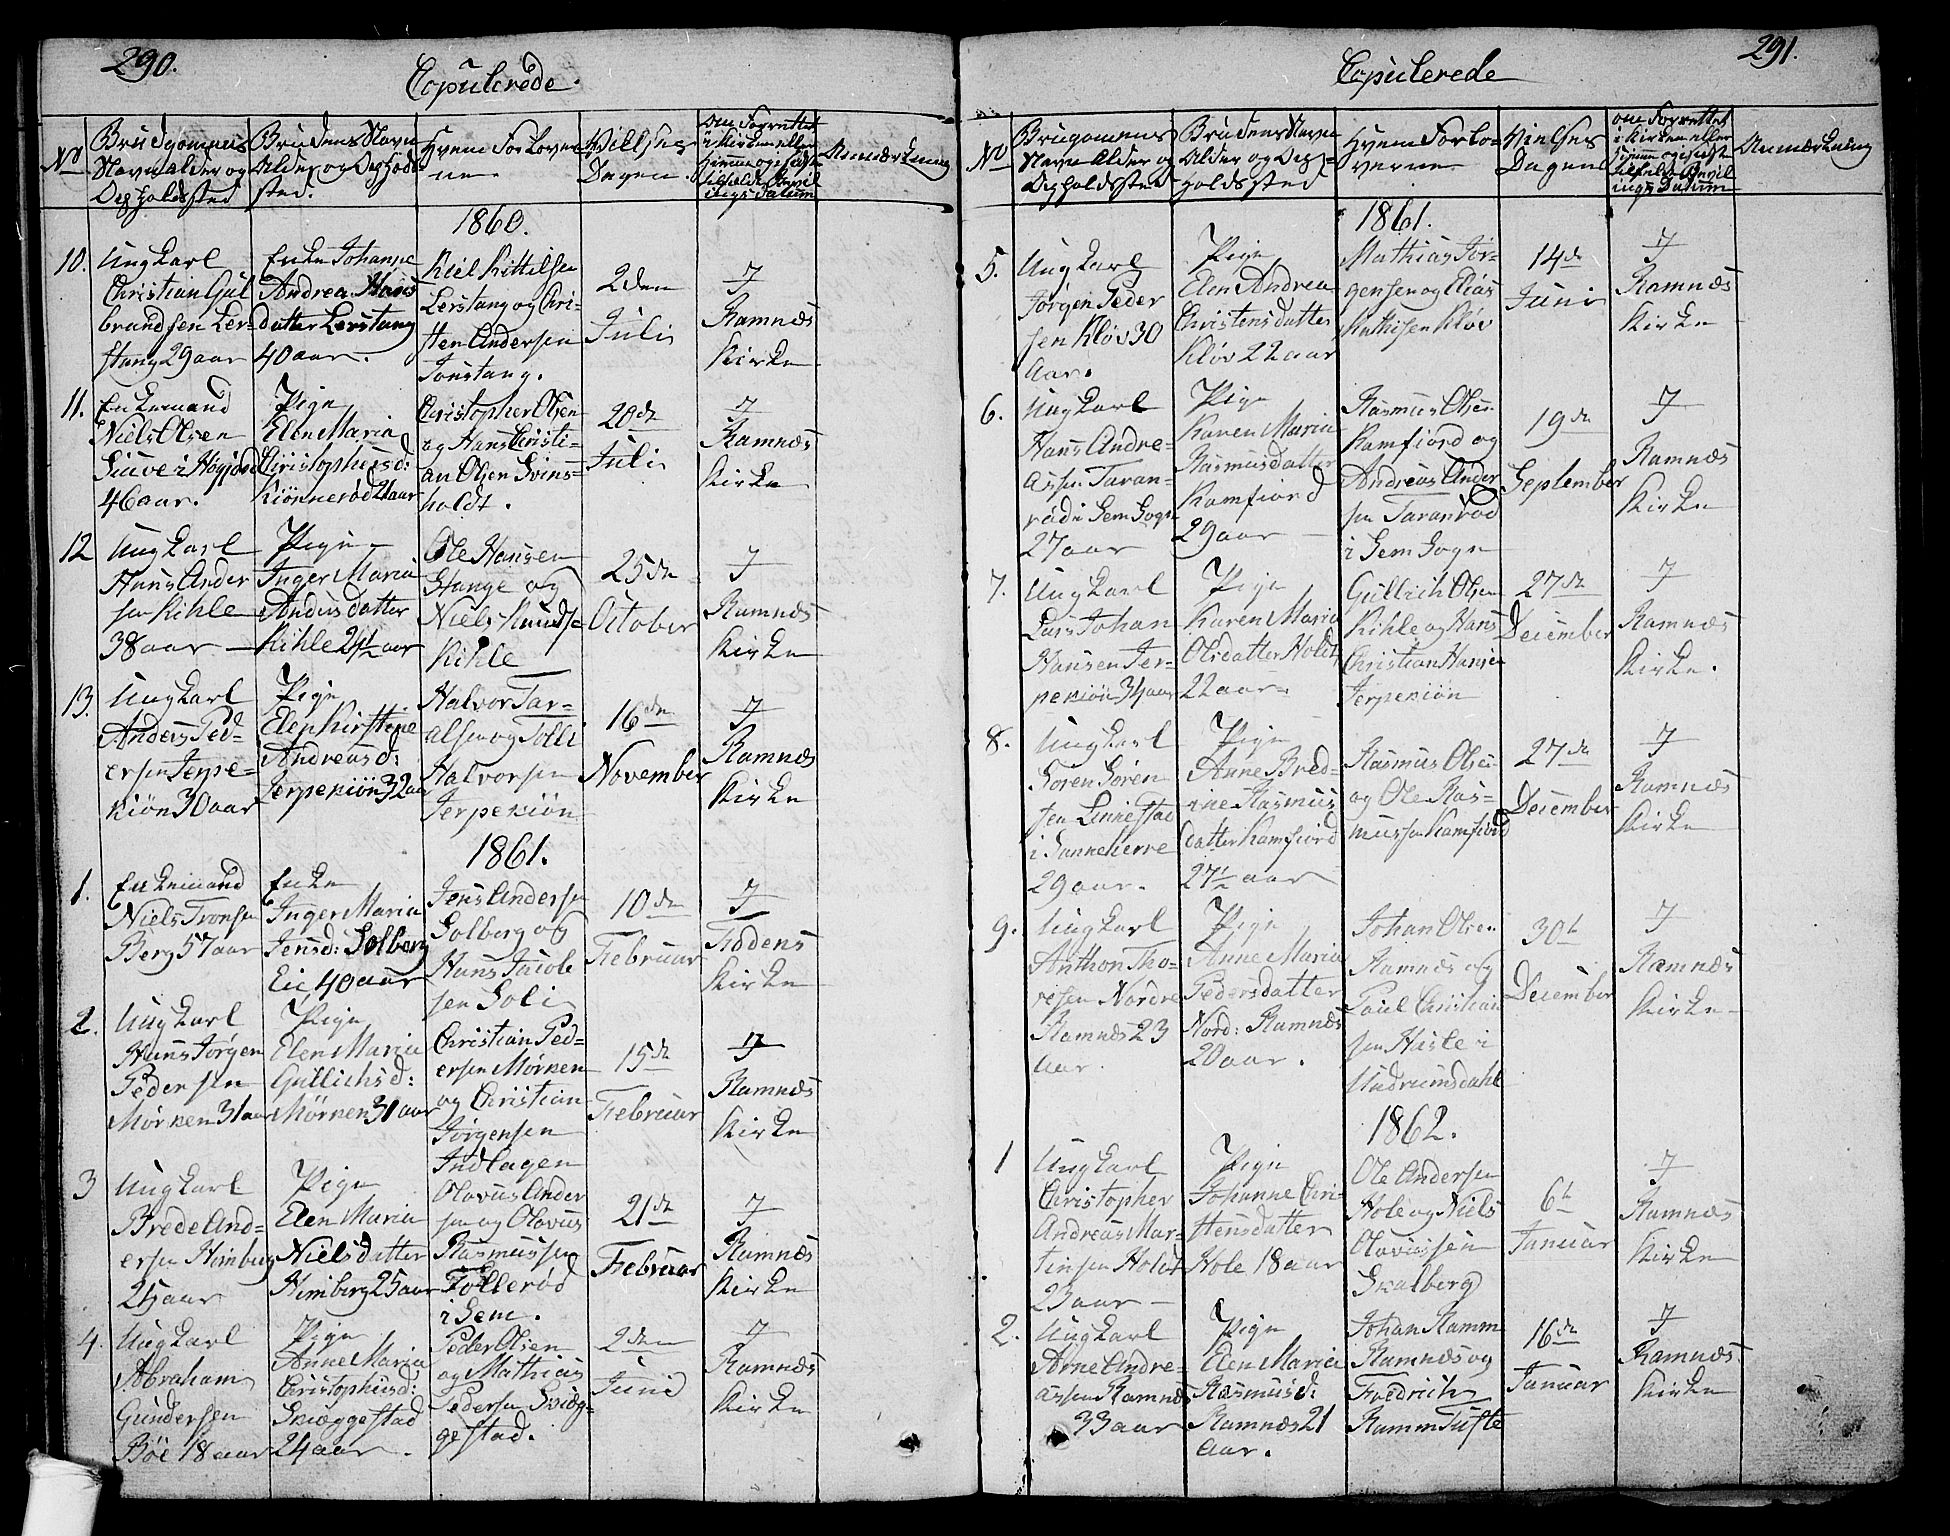 290.
Copulerede.
No
Brudgommens
Navn Alder og
Opholdssted
Brudens Navn
Alder og Ophold
sted.
Hvem Forlover
ne
Vielses
Dagen.
om Forrettet
i Kirken eller
Hjemme og i sidste
tilfælde Bevil
lings Datum
Anmærkning
1860.
10.
Ungkarl
Christian Gul
brandsen Ler-
stang 29 aar
Enke Johanne
Andrea Hans
datter Lerstang
40 aar.
Kiel Kittilsen
Lerstang og Chri-
sten Andersen
Jonstang.
2den
Juli
I
Ramnæs
Kirke
11.
Enkemand
Niels Olsen
i Høijord
46 aar.
Pige
Elen Maria
Christophersd:
Kiønnerød 21 aar
Christopher Olsen
og Hans Christi-
an Olsen Svins-
holdt.
20de
Juli
I
Ramnæs
Kirke
12
Ungkarl
Hans Ander
sen Kihle
38 aar
Pige
Inger Maria
Andersdatter
Kihle 24½ aar
Ole Hansen
Stange og
Niels Knuds
Kihle
25de
October
I
Ramnæs
Kirke
13.
Ungkarl
Anders Ped-
ersen Jerpe-
kiøn 30 aar
Pige
Elen Kirstene
Andreasd:
Jerpekiøn 32 aar
Halvor Tar-
alsen og Tolli
Halvorsen
Jerpekiøn
16de
November
I
Ramnæs
Kirke
1861.
1.
Enkemand
Niels Tronsen
Berg 57 aar
Enke
Inger Maria
Jensd: Solberg
Eie 40 aar
Jens Andersen
Solberg og
Hans Jacob
sen Soli
10de
Februar
I
Fødens
Kirke
2.
Ungkarl
Hans Jørgen
Pedersen
Mørken 31 aar
Pige
Elen Maria
Gullichsd:
Mørken 31 aar
Christian Ped-
ersen Mørken
og Christian
Jørgensen
Indlagen
15de
Februar
I
Ramnæs
Kirke
3
Ungkarl
Brede And-
ersen Himberg
24 aar
Pige
Elen Maria
Nielsdatter
Himberg 25 aar
Olavus Ander
sen og Olavus
Rasmussen
Follerød
i Sem.
21de
Februar
I
Ramnæs
Kirke
4.
Ungkarl
Abraham
Gundersen
Bøe 18 aar
Pige
Anne Maria
Christophersd:
Skiæggestad
24 aar.
Peder Olsen
og Mathias
Pedersen Skiæg-
gestad.
2den
Juni
I
Ramnæs
Kirke
291.
Copulerede
No
Brugomens
Navn Alder og
Opholdssted
Brudens Navn
Alder og Op-
holdssted
Hvem Forlo-
verne
Vielses
Dagen
om Forrettet
i Kirken eller
hjemme og i sidste
tilfælde Bevil
lings Datum
Anmærkning
1861.
5.
Ungkarl
Jørgen Peder
sen Kløv 30
aar.
Pige
Elen Andrea
Christensdatter
Kløv 22 aar
Mathias Jør-
gensen og Elias
Mathisen Kløv
14de
Juni
I
Ramnæs
Kirke
6.
Ungkarl
Hans Andre-
assen Taran-
rød i Sem Sogn
27 aar
Pige
Karen Maria
Rasmusdatter
Kamfiord
29 aar
Rasmus Olsen
Kamfiord og
Andreas Ander
sen Taranrød
i Sem Sogn
19de
September
I
Ramnæs
Kirke
7.
Ungkarl
Lars Johan
Hansen Jer-
pekiøn 34 aar
Pige
Karen Maria
Olsdatter Holdt
22 aar.
Gullich Olsen
Kihle og Hans
Christian Hansen
Jerpekiøn
27de
December
I
Ramnæs
Kirke.
8.
Ungkarl
Søren Søren
sen Linnestad
i Sanneherre
29 aar.
Pige
Anne Bred-
ine Rasmus
datter Kamfiord
27½ aar
Rasmus Olsen
og Ole Ras-
mussen Kamfiord
27de
December
I
Ramnæs
Kirke
9.
Ungkarl
Anthon Tho-
resen Nordre
Ramnæs 23
aar.
Pige
Anne Maria
Pedersdatter
Nord: Ramnæs
20 aar.
Johan Olsen
Ramnæs og
Paul Christian
sen Hasle i
Undrumsdahl
30te
December
I
Ramnæs
Kirke
1862.
1
Ungkarl
Christopher
Andreas Mar-
tinsen Holdt
23 aar
Pige
Johanne Chri-
stensdatter
Hole 18 aar
Ole Andersen
Hole og Niels
Olavussen
Skalberg
6te
Januar
I
Ramnæs
Kirke
2.
Ungkarl
Arne Andre-
assen Ramnæs
33 aar
Pige
Elen Maria
Rasmusd:
Ramnæs 21
aar.
Johan Ramm
Ramnæs og
Fredrich
Ramm Tufte
16de
Januar
I
Ramnæs
Kirke